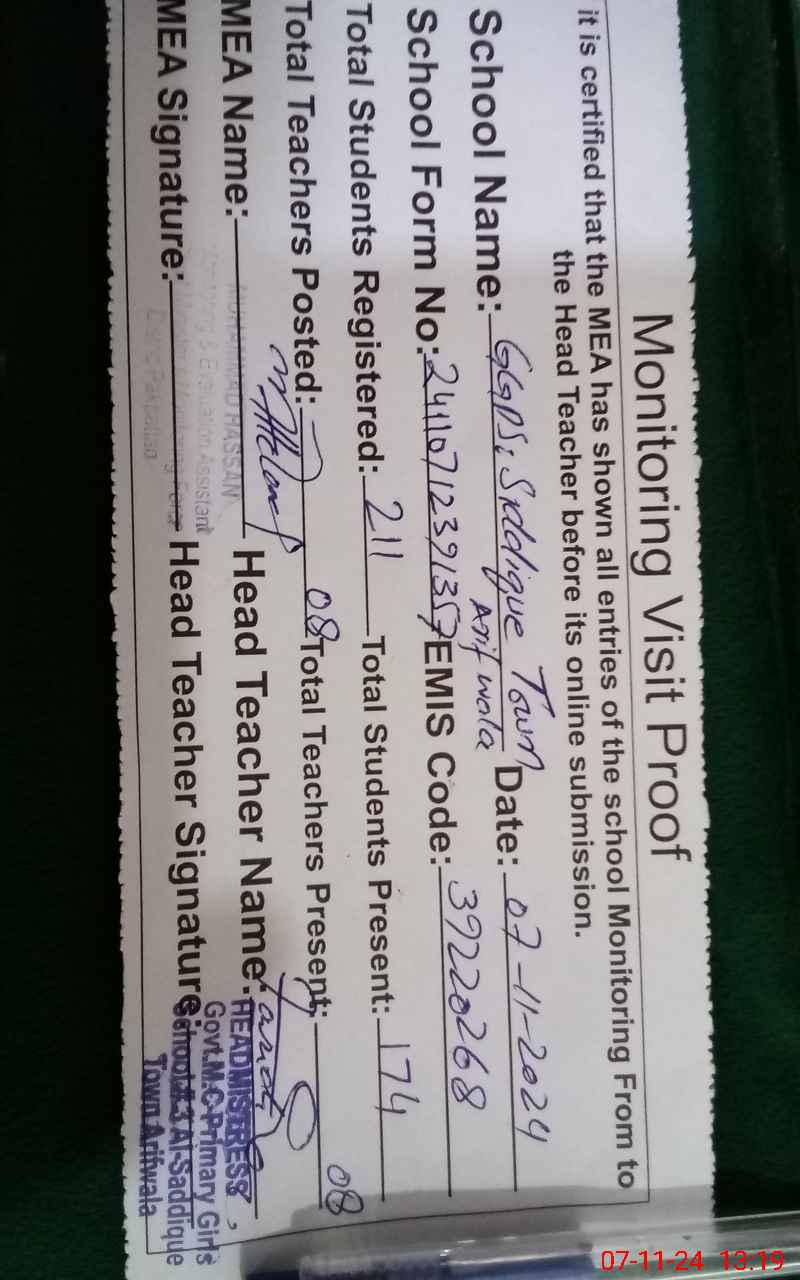 Monitoring Visit Proof
it is certified that the MEA has shown all entries of the school Monitoring From to
the Head Teacher before its online submission.
School Name: GGPS, Siddique Town Date: 07-11-2024
Arif wala
School Form No: 24110712391357 EMIS Code: 39220268
Total Students Registered: 211 Total Students Present: 174
Total Teachers Posted: 08 Total Teachers Present: 08
MEA Name: Head Teacher Name:
MUHAMMAD HASSAN
Monitoring & Evaluation Assistant
MEA Signature: Head Teacher Signature:
District Pakpattan
HEADMISTRESS
Govt.M.C Primary Girls
School#.3 Al-Saddique
Town Arifwala
07-11-24 13:19